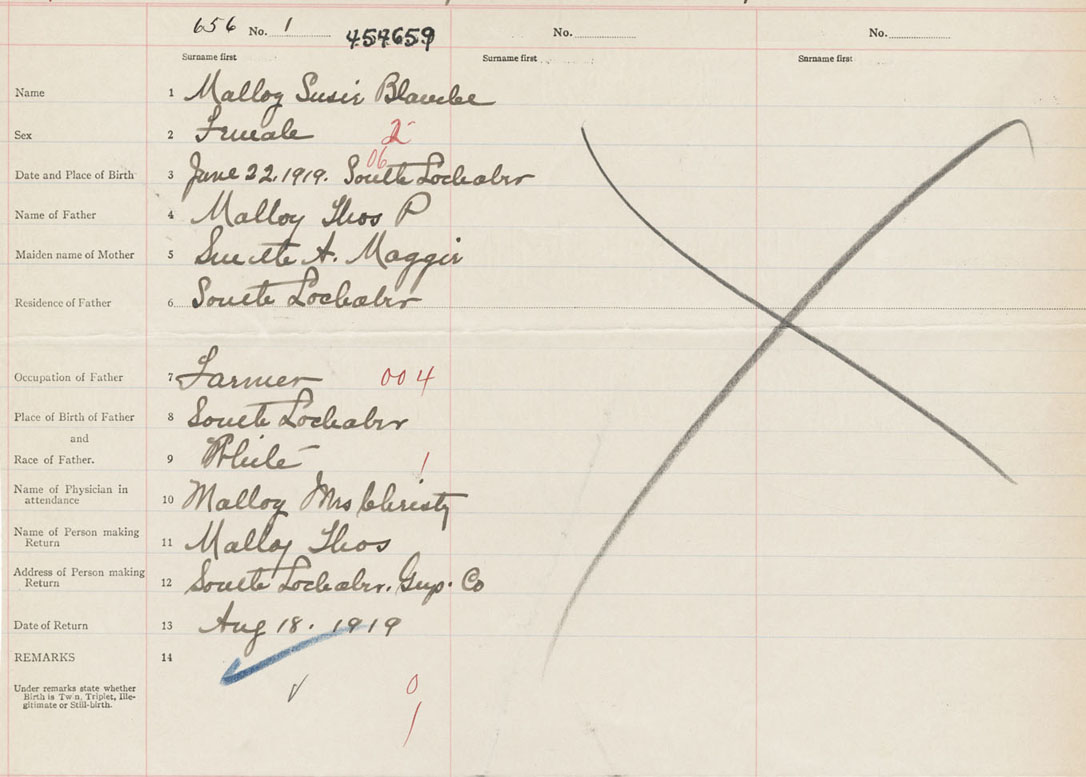 656 No. 1 454659 No. No.
Surname first Surname first Surname first
Name 1 Malloy Susie Blanche
Sex 2 Female 2
06
Date and Place of Birth 3 June 22. 1919. South Lochaber
Name of Father 4 Malloy Thos P
Maiden name of Mother 5 A. Maggie
Residence of Father 6 South Lochaber
Occupation of Father 7 Farmer 004
Place of Birth of Father 8 South Lochaber
and
Race of Father. 9 White 1
Name of Physician in
attendance 10 Malloy Mrs Christy
Name of Person making
Return 11 Malloy Thos
Address of Person making
Return 12 South Lochaber. Guy. Co
Date of Return 13 Aug 18. 1919
REMARKS 14
Under remarks state whether
Birth is Twin, Triplet, Ille-
gitimate or Still-birth.
0
1